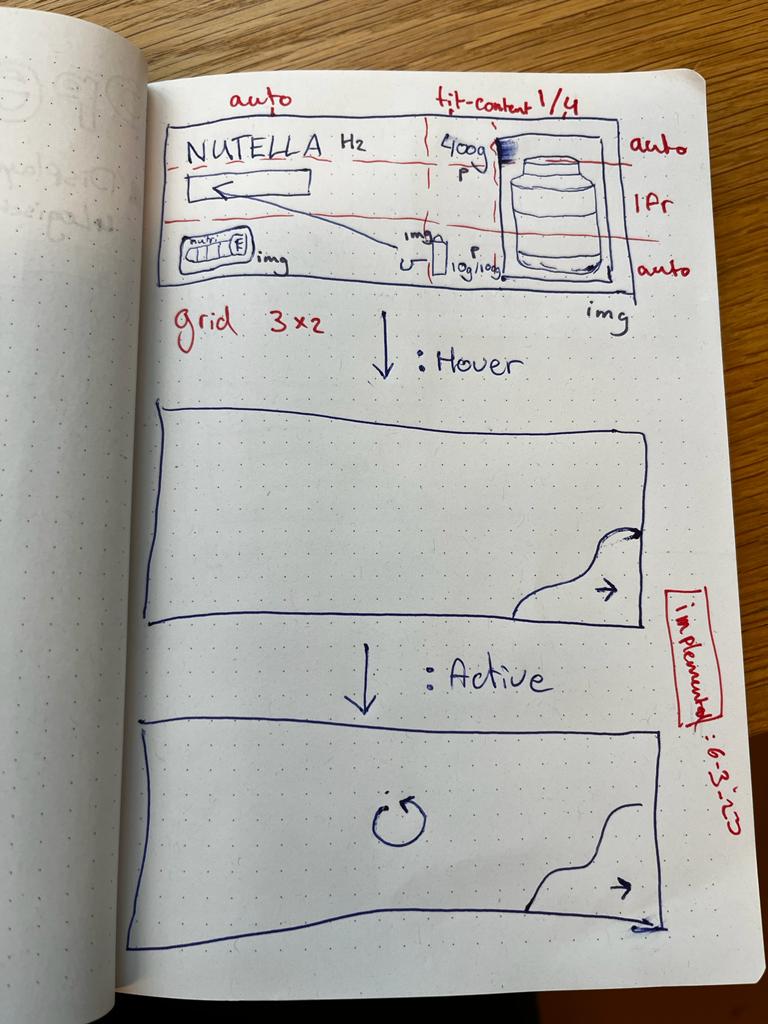 auto fit-content 1/4
NUTELLA H2 400g auto
P
1fr
nutri E img img P
10g/100g auto
img
grid 3x2
: Hover
→
implemented : 6-3-'23
: Active
→